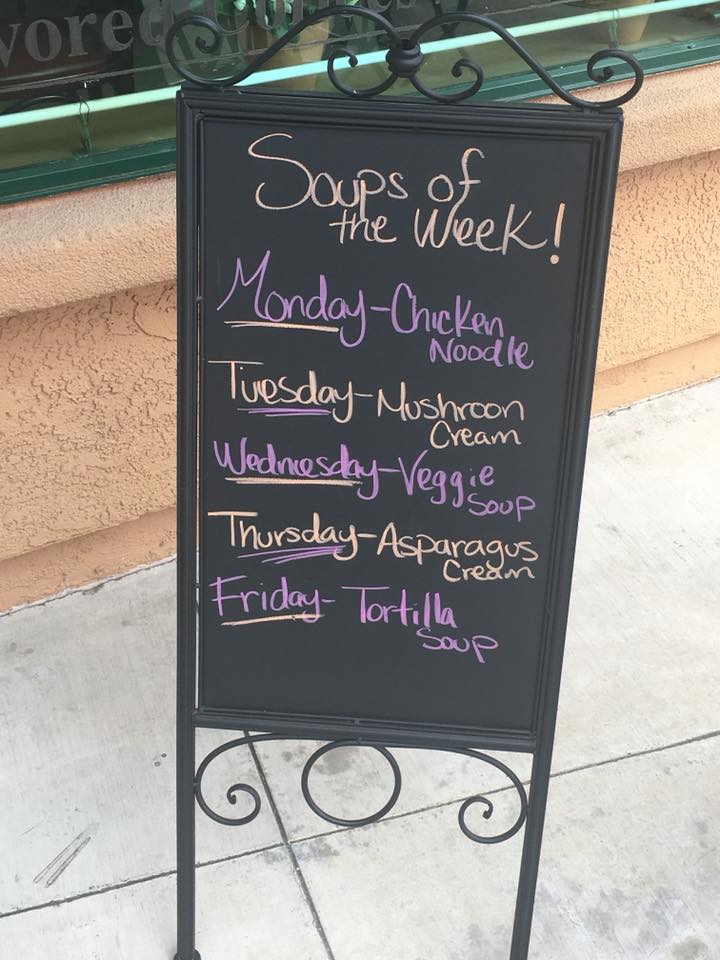 vored Coffees
Soups of
the Week!
Monday-Chicken
Noodle
Tuesday-Mushroon
Cream
Wednesday-Veggie
Soup
Thursday-Asparagus
Cream
Friday-Tortilla
Soup